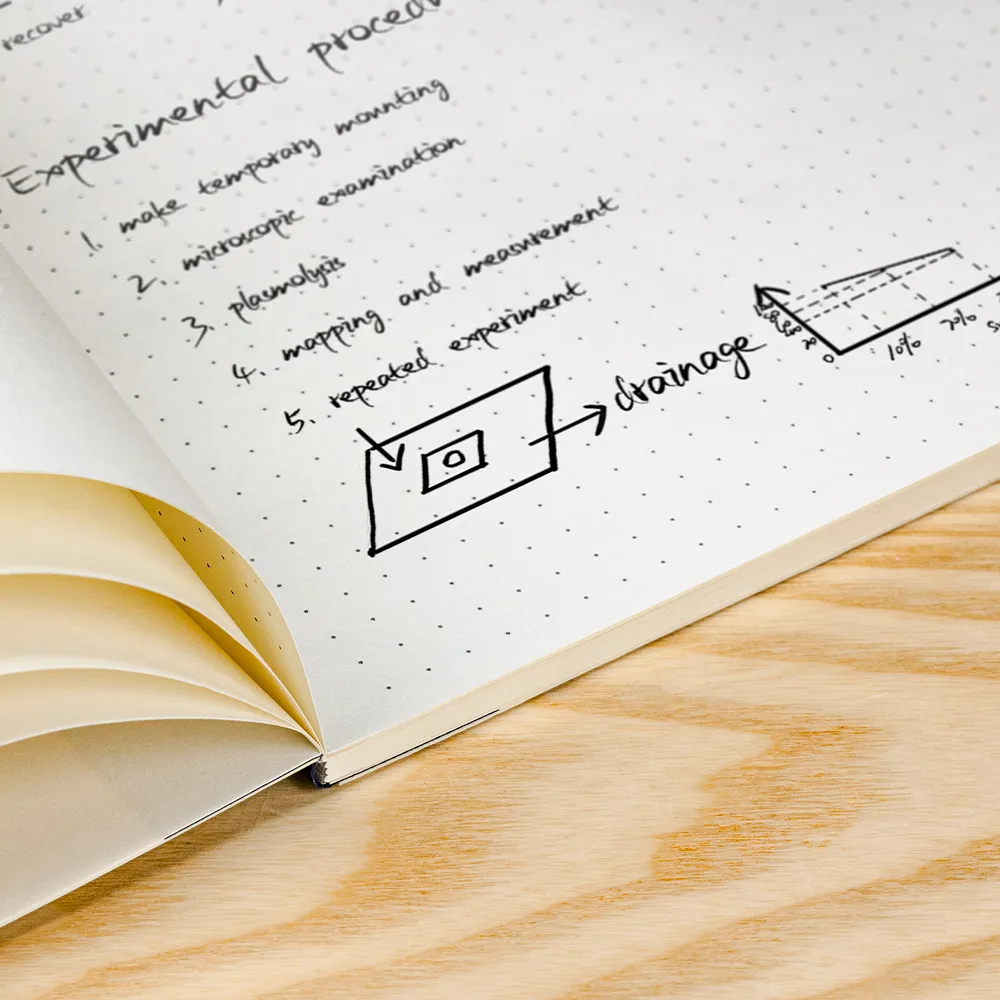 recover
Experimental proced
1. make temporary mounting
2. microscopic examination
3. plasmolysis
4. mapping and measurement
5. repeated experiment
drainage
20
0
10%